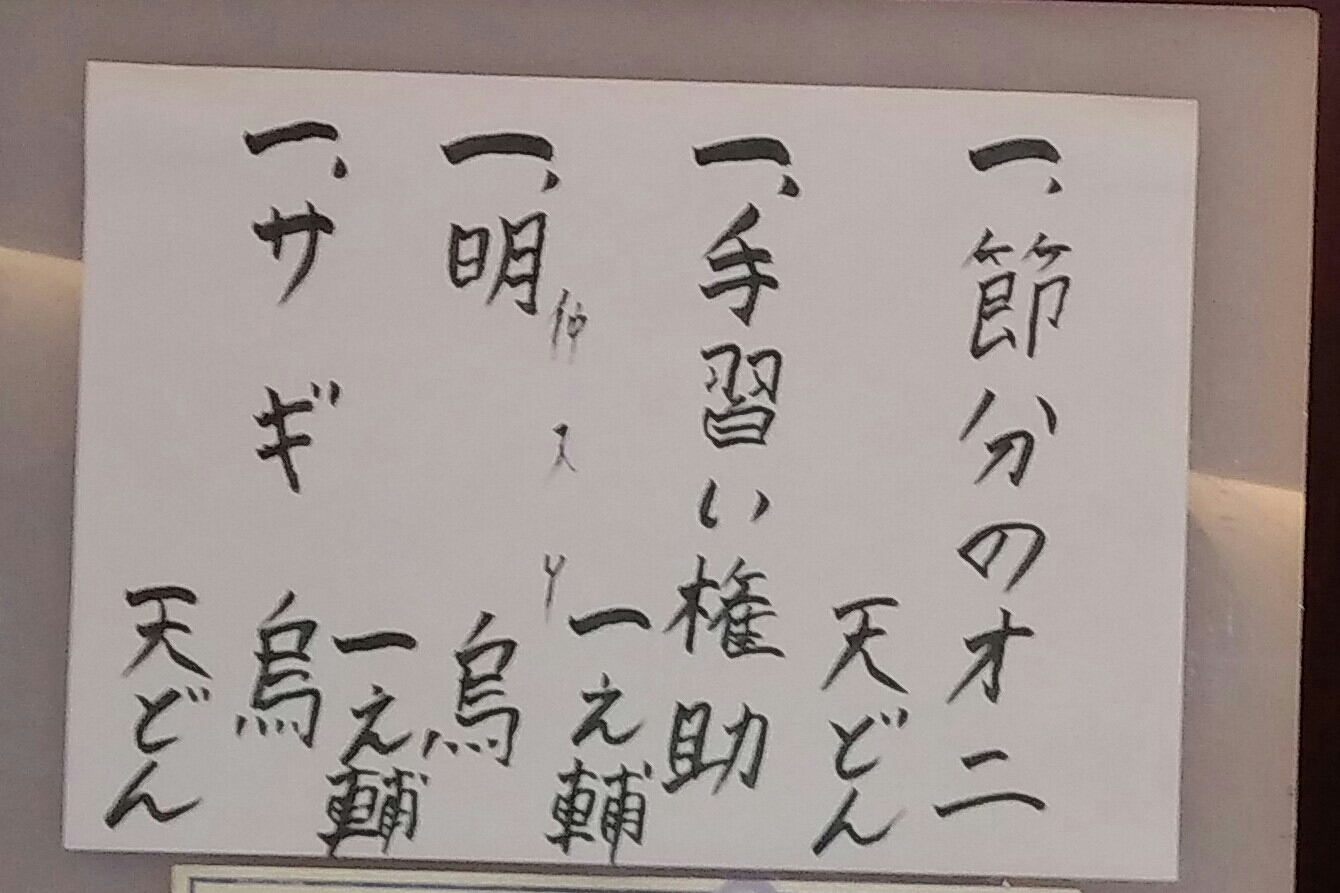 一、節分のオニ
天どん
一、手習い権助
一之輔
仲入り
一、明烏
一之輔
一、サギ
烏
天どん